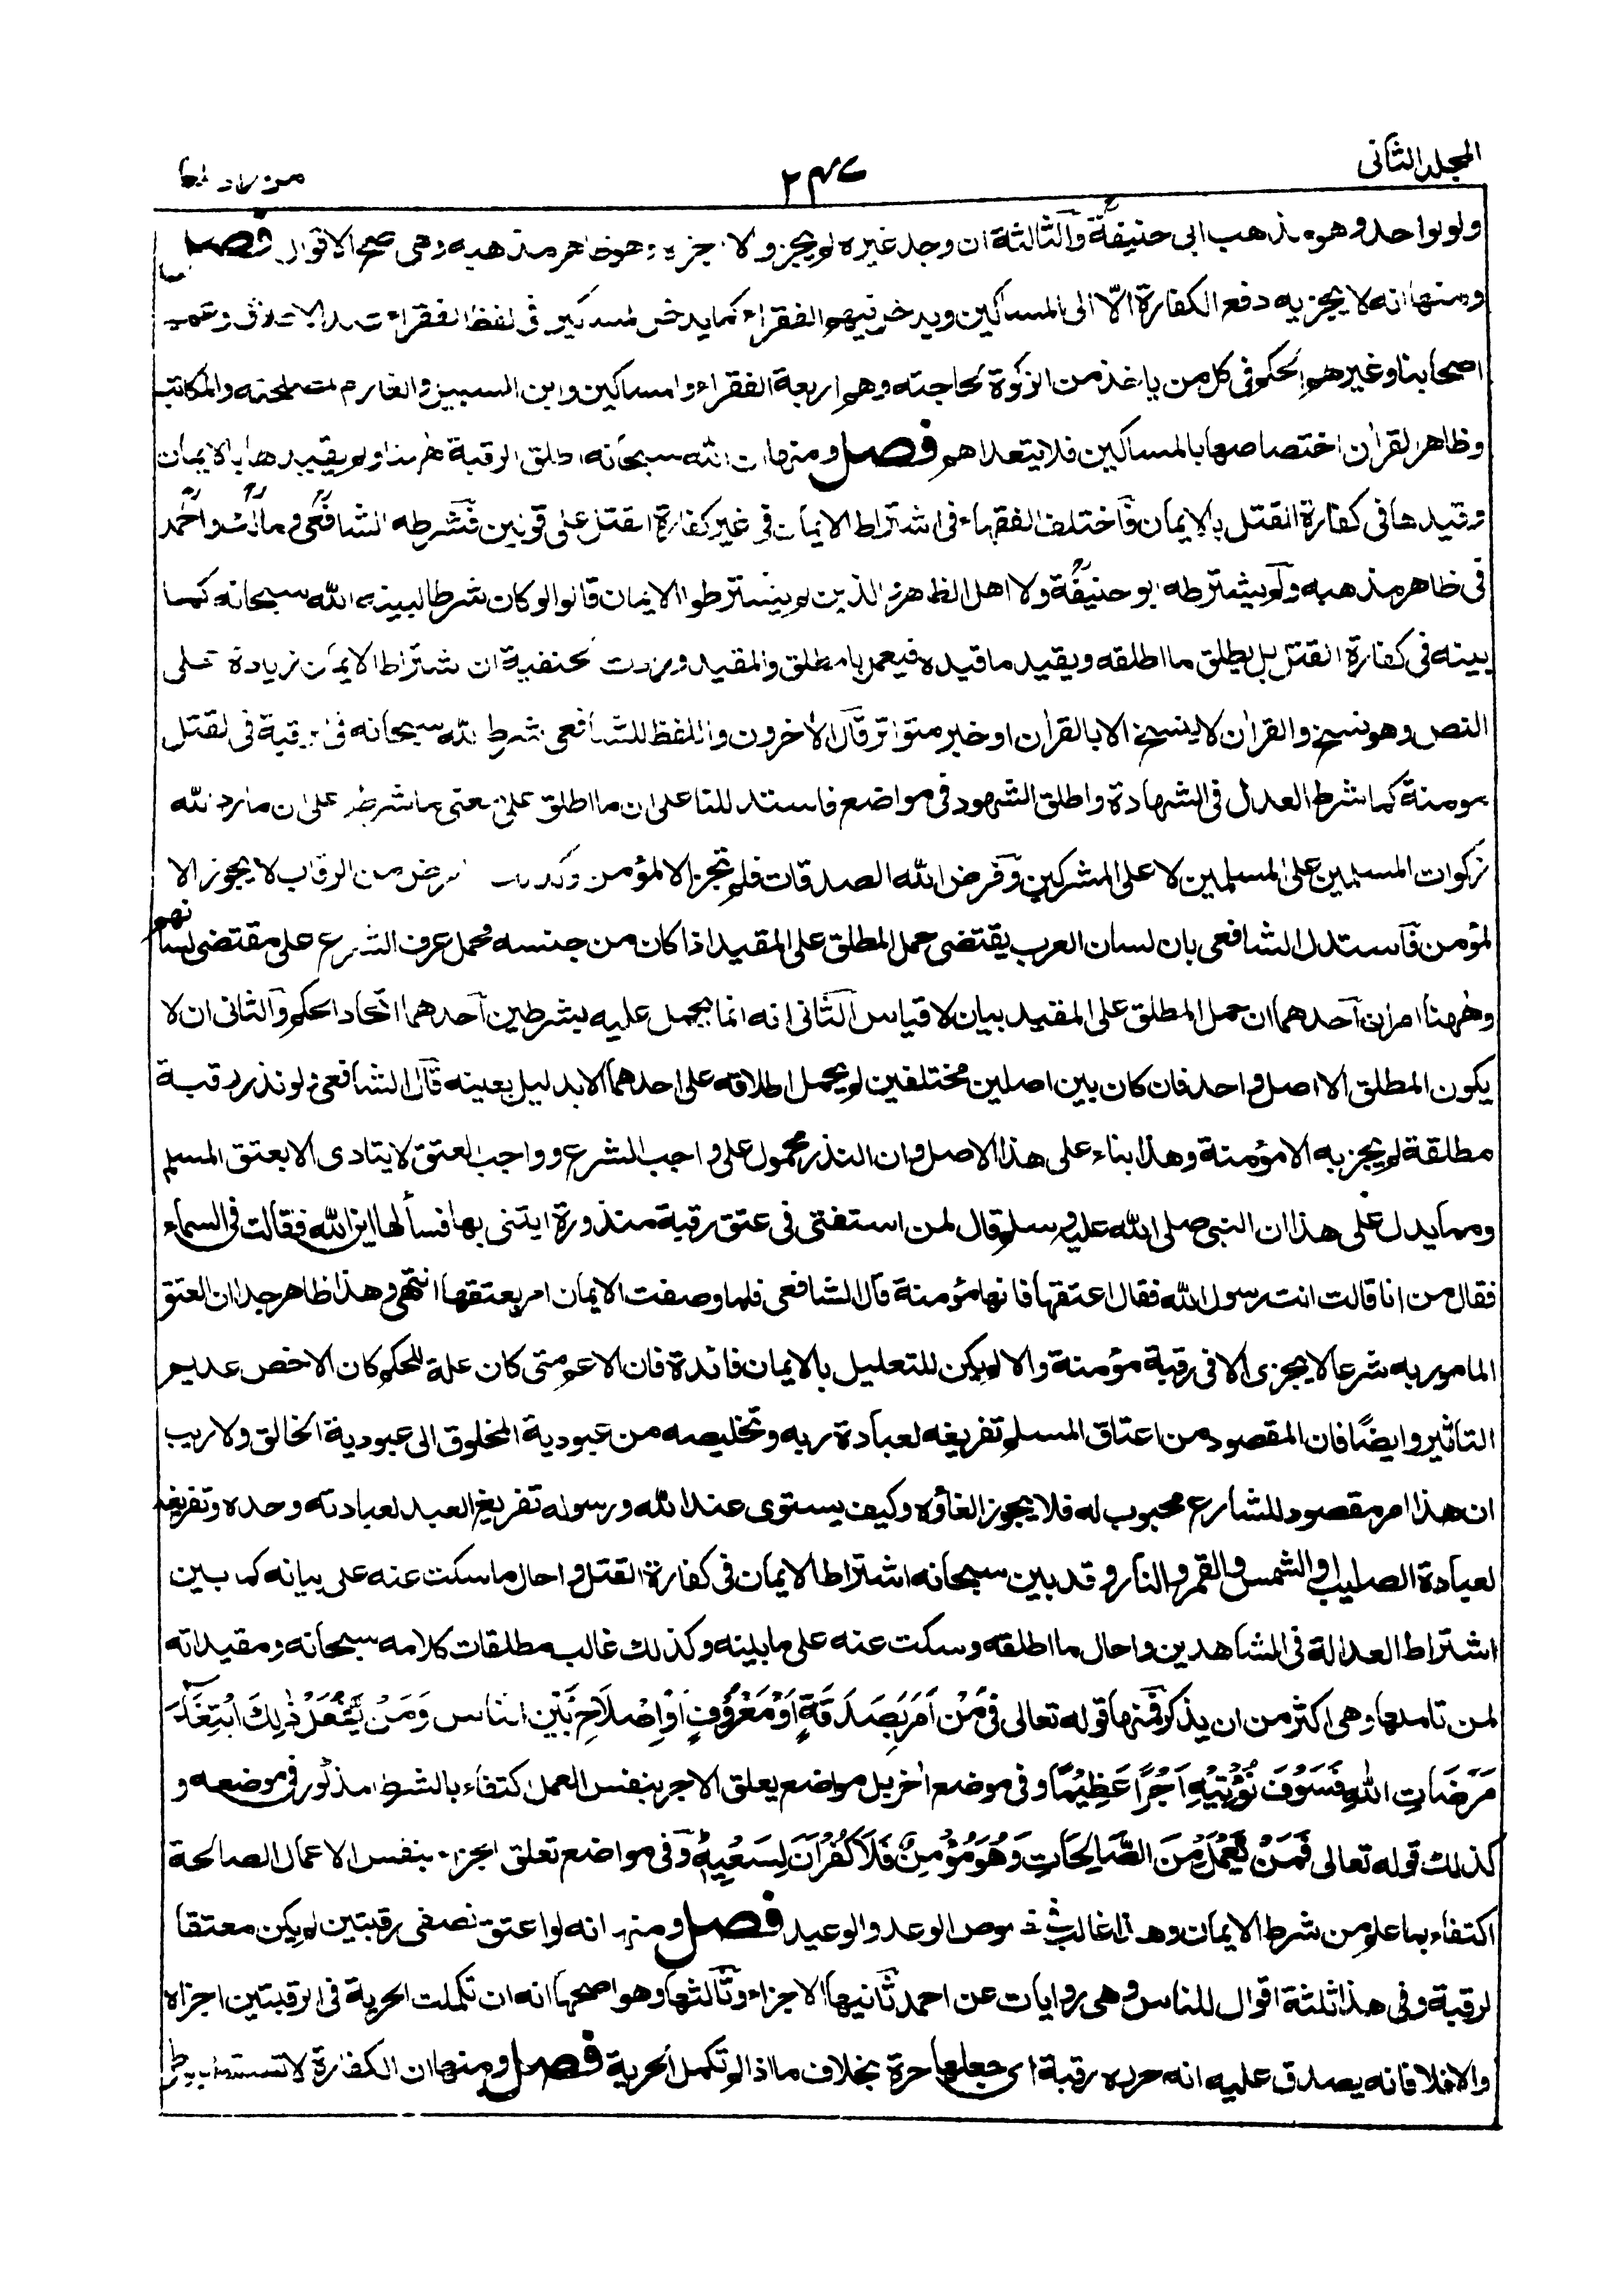 المجلد الثانى
٢٣٧
من زاد
ولو لواحد وهو مذهب ابى حنيفة والثالثة ان وجد غيره لم يجز والا اجزاه وهو ظاهر مذهبه وهى اصح الاقوال فصل
ومنها انه لا يجزيه دفع الكفارة الا الى المساكين ويدخل فيهم الفقراء كما يدخل المساكين فى لفظ الفقراء عند الاطلاق وعمم
اصحابنا وغيرهم الحكم فى كل من ياخذ من الزكوة لحاجته وهم اربعة الفقراء والمساكين وابن السبيل والغارم لمصلحته والمكاتب
وظاهر القرآن اختصاصها بالمساكين فلا يتعداهم فصل ومنها ان الله سبحانه اطلق الرقبة ههنا ولم يقيدها بالايمان
وقيدها فى كفارة القتل بالايمان فاختلف الفقهاء فى اشتراط الايمان فى غير كفارة القتل على قولين فشرطه الشافعى ومالك واحمد
فى ظاهر مذهبه ولم يشترطه ابو حنيفة ولا اهل الظاهر الذين لم يشترطوا الايمان قالوا لو كان شرطا لبينه الله سبحانه كما
بينه فى كفارة القتل بل يطلق ما اطلقه ويقيد ما قيده فيعمل بالمطلق والمقيد وزادت الحنفية ان اشتراط الايمان زيادة على
النص وهو نسخ والقرآن لا ينسخ الا بالقرآن او خبر متواتر قال الآخرون واللفظ للشافعى شرط الله سبحانه فى رقبة فى القتل
مومنة كما شرط العدل فى الشهادة واطلق الشهود فى مواضع فاستدللنا على ان ما اطلق على معنى ما شرط على ان ما رد الله
زكوات المسلمين على المسلمين لا على المشركين وفرض الله الصدقات فلم تجز الا لمؤمن وكذلك ما فرض من الرقاب لا يجوز الا
لمؤمن فاستدل الشافعى بان لسان العرب يقتضى حمل المطلق على المقيد اذا كان من جنسه فحمل عرف الشرع على مقتضى لسانهم
وههنا امران احدهما ان حمل المطلق على المقيد بيان لا قياس الثانى انه انما يحمل عليه بشرطين احدهما اتحاد الحكم والثانى ان لا
يكون المطلق الا اصل واحد فان كان بين اصلين مختلفين لم يحمل اطلاقه على احدهما الا بدليل يعينه قال الشافعى ولو نذر رقبة
مطلقة لم يجزيه الا مؤمنة وهذا بناء على هذا الاصل وان النذر محمول على واجب الشرع وواجب العتق لا يتادى الا بعتق المسلم
ومما يدل على هذا ان النبى صلى الله عليه وسلم قال لمن استفتى فى عتق رقبة منذورة ايتنى بها فسألها اين الله فقالت فى السماء
فقال من انا قالت انت رسول الله فقال اعتقها فانها مؤمنة قال الشافعى فلما وصفت الايمان امر بعتقها انتهى وهذا ظاهر جدا ان العتق
المامور به شرعا لا يجزى الا فى رقبة مؤمنة والا لم يكن للتعليل بالايمان فائدة فان الاعم متى كان علة للحكم كان الاخص عديم
التاثير وايضًا فان المقصود من اعتاق المسلم تفريغه لعبادة ربه وتخليصه من عبودية المخلوق الى عبودية الخالق ولا ريب
ان هذا امر مقصود للشارع محبوب له فلا يجوز الغاؤه وكيف يستوى عند الله ورسوله تفريغ العبد لعبادته وحده وتفريغه
لعبادة الصليب او الشمس والقمر والنار وقد بين سبحانه اشتراط الايمان فى كفارة القتل واحال ما سكت عنه على بيانه كما بين
اشتراط العدالة فى الشاهدين واحال ما اطلقه وسكت عنه على ما بينه وكذلك غالب مطلقات كلامه سبحانه ومقيداته
لمن تاملها وهى اكثر من ان يذكر فمنها قوله تعالى فى مَنْ اَمَرَ بِصَدَقَةٍ اَوْ مَعْرُوْفٍ اَوْ اِصْلَاحٍ بَيْنَ الناس وَمَنْ يَّفْعَلْ ذٰلِكَ ابْتِغَآءَ
مَرْضَاتِ اللهِ فَسَوْفَ نُؤْتِيْهِ اَجْرًا عَظِيْمًا وفى موضع آخر بل مواضع يعلق الاجر بنفس العمل اكتفاء بالشرط المذكور فى موضعه و
كذلك قوله تعالى فَمَنْ يَّعْمَلْ مِنَ الصَّالِحَاتِ وَهُوَ مُؤْمِنٌ فَلَا كُفْرَانَ لِسَعْيِهٖ وفى مواضع تعلق الجزاء بنفس الاعمال الصالحة
اكتفاء بما علم من شرط الايمان وهذا غالب فى نصوص الوعد والوعيد فصل ومنها انه لو اعتق نصفى رقبتين لم يكن معتقا
لرقبة وفى هذا ثلثة اقوال للناس وهى روايات عن احمد ثانيها الاجزاء وثالثها وهو اصحها انه ان تكملت الحرية فى الرقبتين اجزاه
والا فلا فانه يصدق عليه انه حرر رقبة اى جعلها حرة بخلاف ما اذا لم تكمل الحرية فصل ومنها ان الكفارة لا تسقط